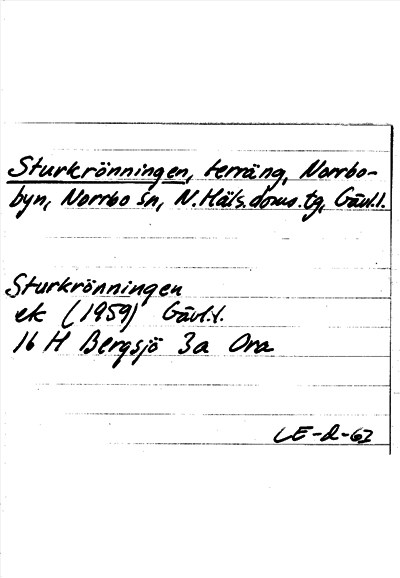 Sturkrönningen, terräng, Norrbo-
byn, Norrbo sn, N. Häls. doms. tg, Gävl.l.
Sturkrönningen
ek (1959) Gävl.l.
16 H Bergsjö 3a Ora
LE-d-62